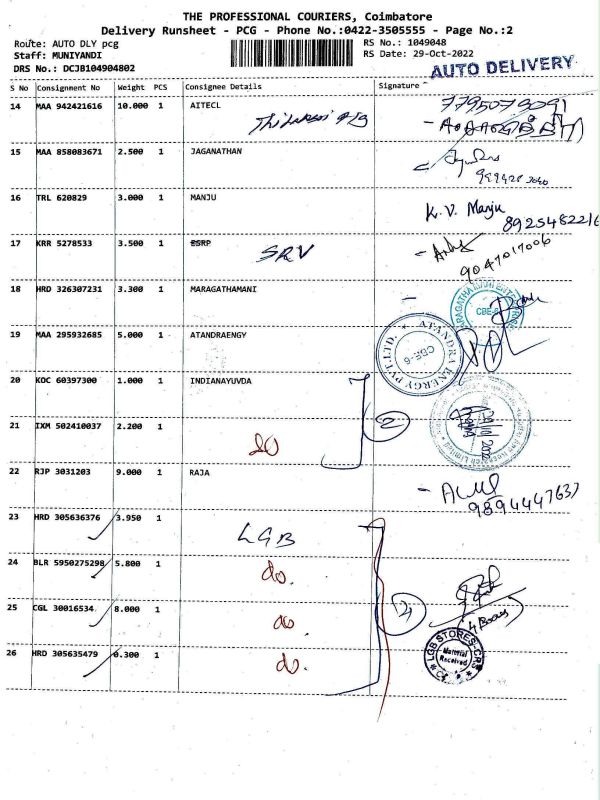 THE PROFESSIONAL COURIERS, Coimbatore
Delivery Runsheet - PCG - Phone No.:0422-3505555 - Page No.:2
Route: AUTO DLY pcg
RS No.: 1049048
Staff: MUNIYANDI
RS Date: 29-Oct-2022
DRS No.: DCJB104904802
AUTO DELIVERY
S No Consignment No Weight PCS Consignee Details Signature
14 MAA 942421616 10.000 1 AITECL
7795079091
15 MAA 858083671 2.500 1 JAGANATHAN
16 TRL 620829 3.000 1 MANJU
K. V. Manju
17 KRR 5278533 3.500 1 ESRP
SRV
9047017006
18 HRD 326307231 3.300 1 MARAGATHAMANI
19 MAA 295932685 5.000 1 ATANDRAENGY
ATANDRA ENERGY PVT.LTD.
CBE-6
20 KOC 60397300 1.000 1 INDIANAYUVDA
2
21 IXM 502410037 2.200 1
do
22 RJP 3031203 9.000 1 RAJA
23 HRD 305636376 3.950 1
LGB
24 BLR 5950275298 5.800 1
do.
25 CGL 30016534 8.000 1
do.
26 HRD 305635479 6.300 1
do.
LGB STORES-CRS
Material
Received